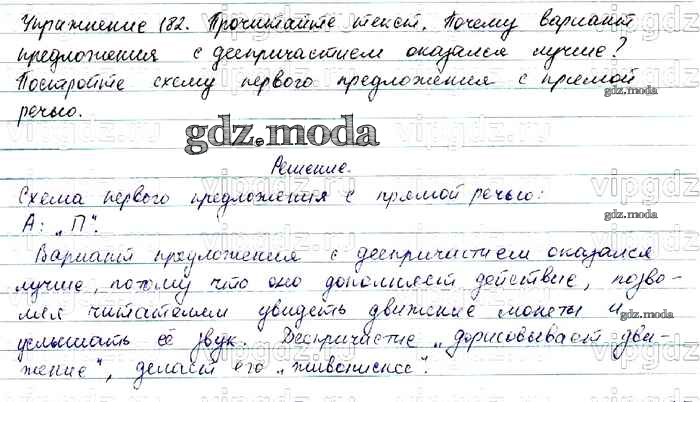 Упражнение 182. Прочитайте текст. Почему вариант
предложения с деепричастием оказался лучше?
Постройте схему первого предложения с прямой
речью.
gdz.moda
Решение.
Схема первого предложения с прямой речью:
А: „П".
Вариант предложения с деепричастием оказался
лучше, потому что оно дополняет действие, позво-
ляя читателям увидеть движение монеты и
услышать её звук. Деепричастие „дорисовывает дви-
жение", делает его „живописнее".